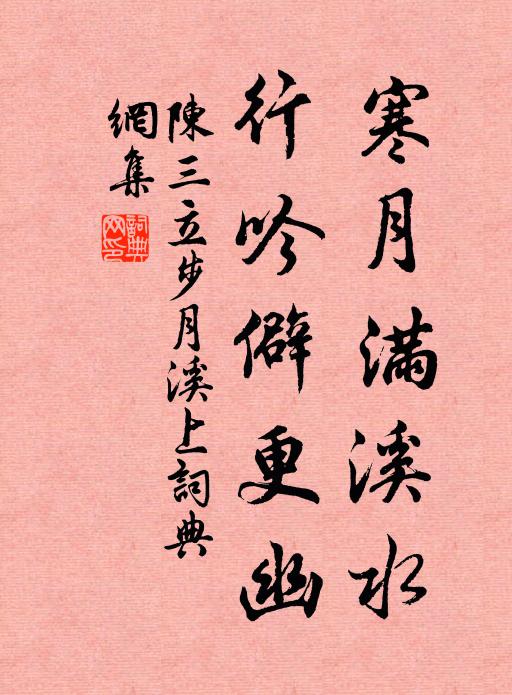 寒月满溪水
行吟僻更幽
陳三立步月溪上詞典
網集
詞典
网印